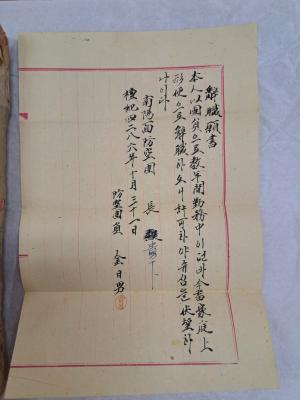 辭職願書
本人以團員으로數年間勤務中이던바今番家庭上
形便으로辭職하오니許可하야주심을伏望하
나이다
南陽面防空團 長
檀紀四二八六年十月三十一日
防空團員 金日男